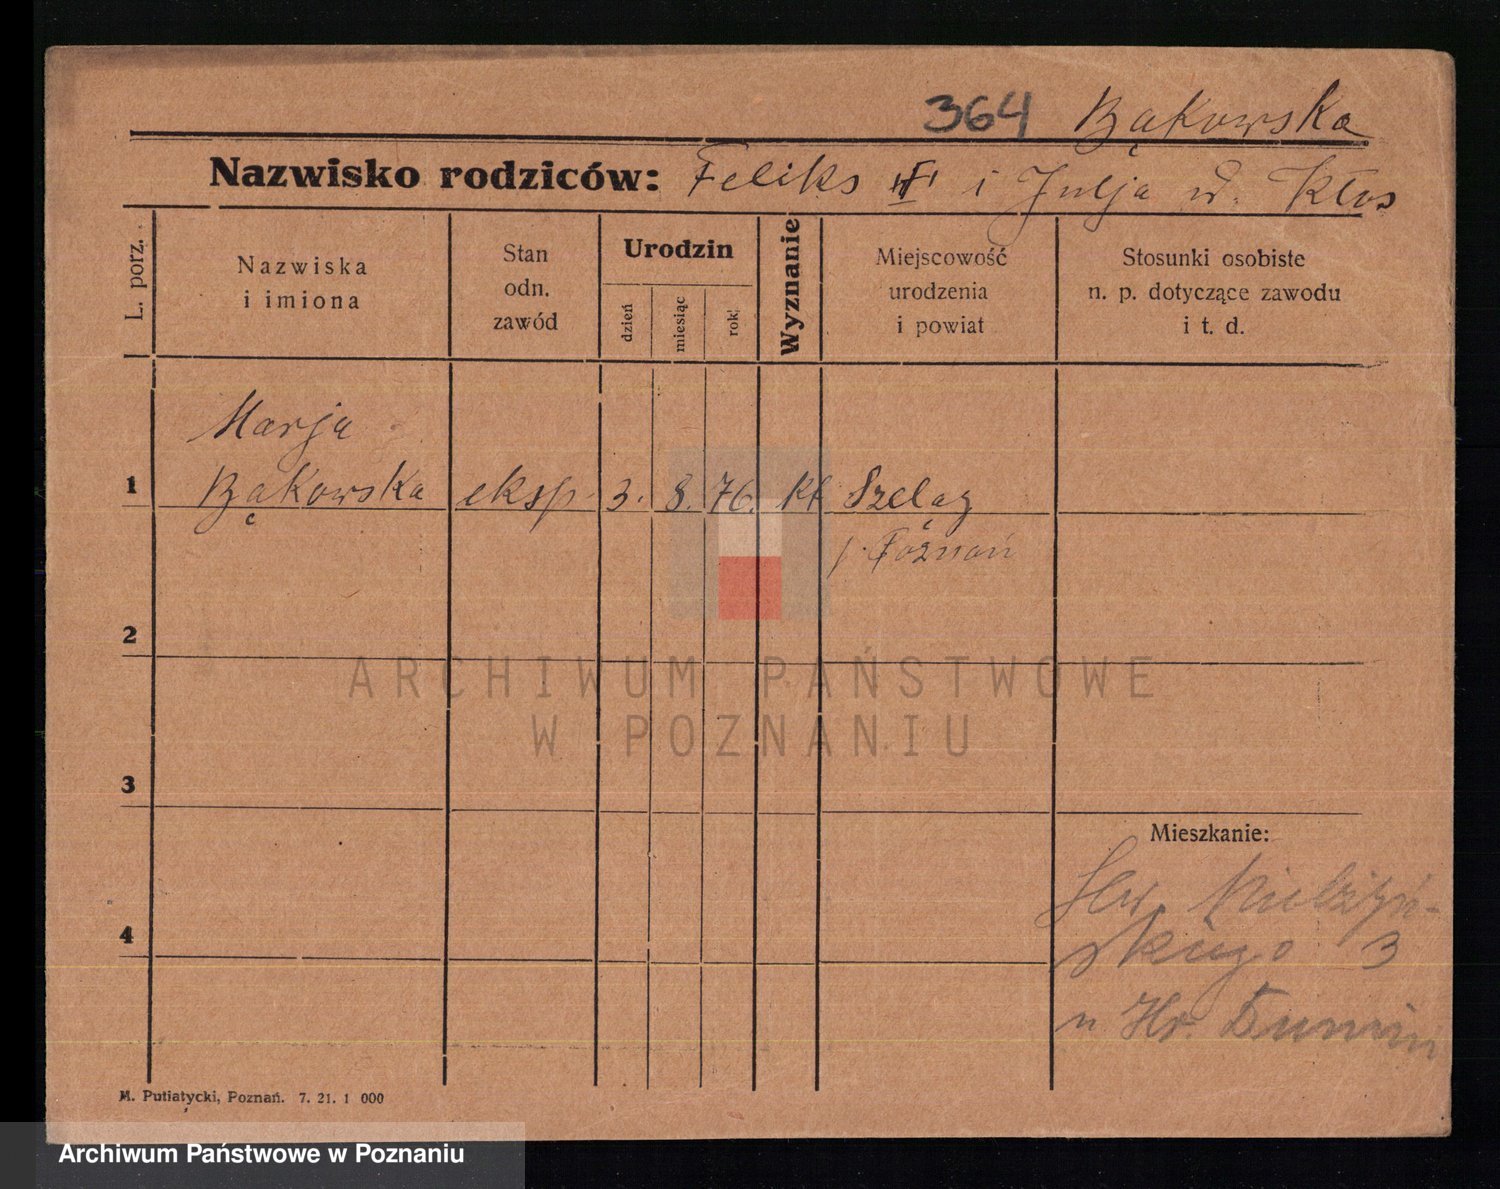 364 Bąkowska
Nazwisko rodziców: Feliks i Julja d. Kłos
L. porz.
Nazwiska
i imiona
Stan
odn.
zawód
Urodzin
dzień
miesiąc
rok
Wyznanie
Miejscowość
urodzenia
i powiat
Stosunki osobiste
n. p. dotyczące zawodu
i t. d.
Marja
1 Bąkowska eksp. 3. 8. 76. kt Szeląg
p. Poznań
2
ARCHIWUM PAŃSTWOWE
W POZNANIU
3
Mieszkanie:
Mielżyń-
4
skiego 3
u Hr.
M. Putiatycki, Poznań. 7. 21. 1 000
Archiwum Państwowe w Poznaniu